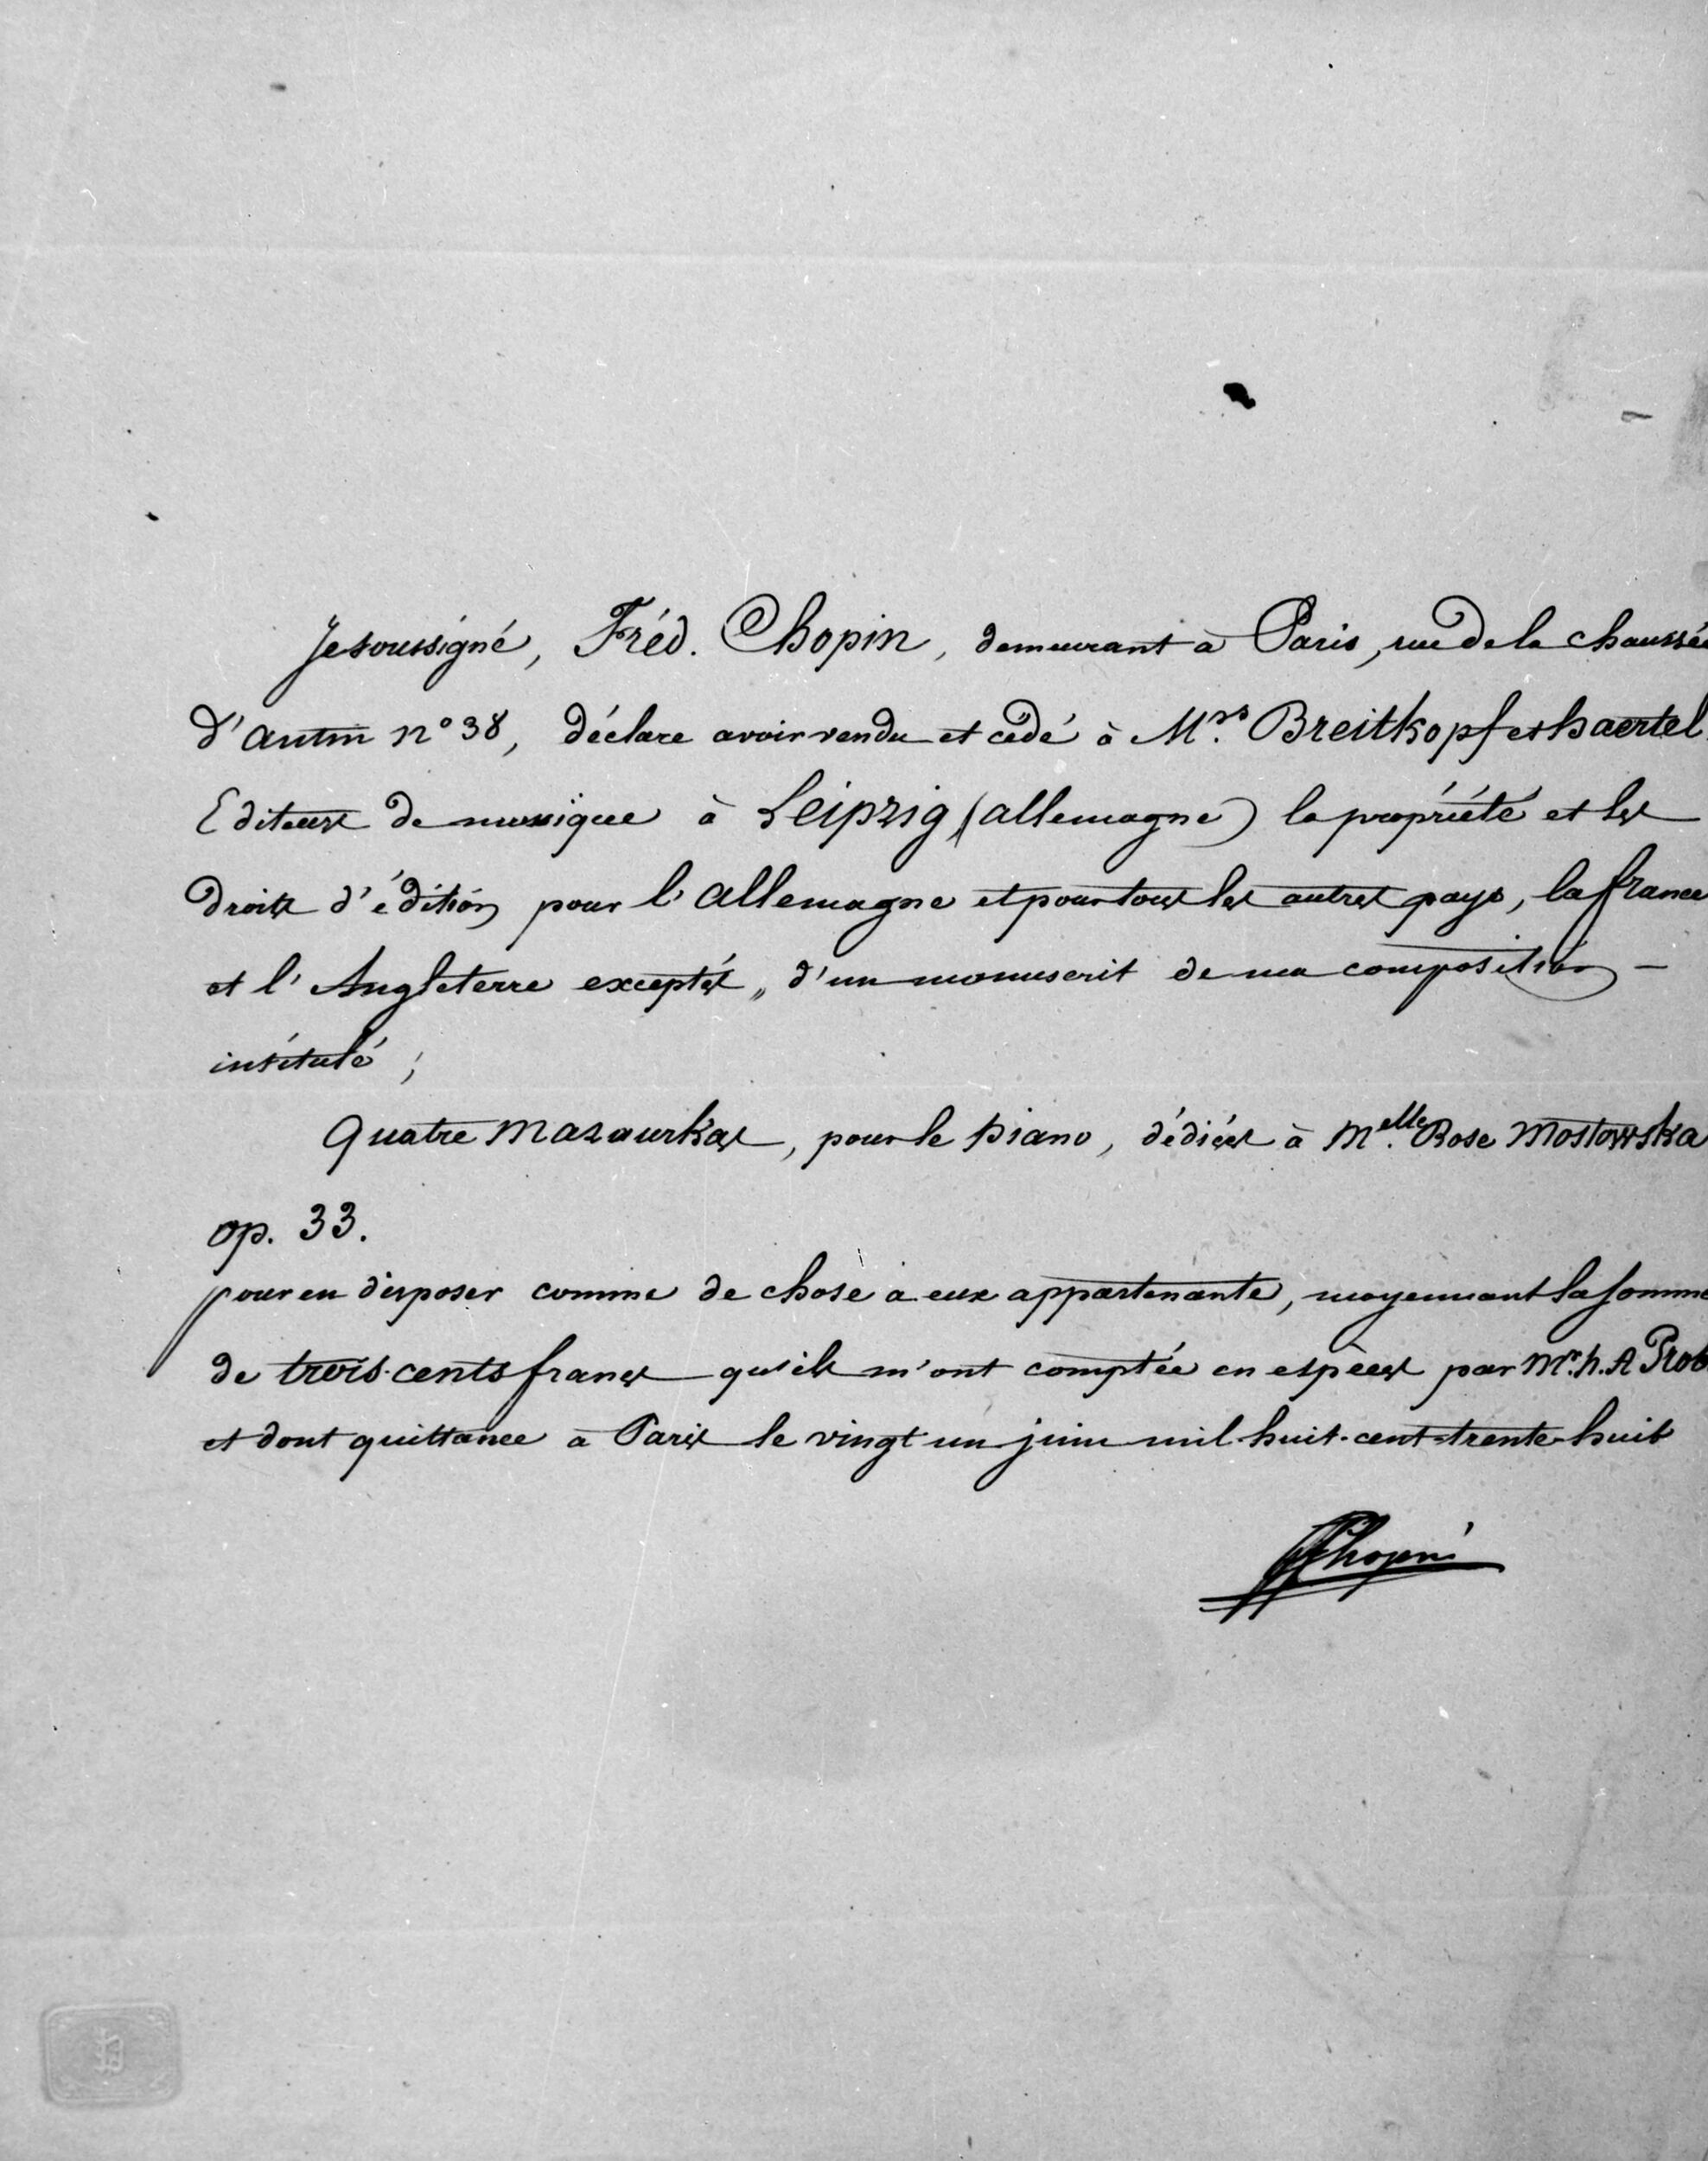 Je soussigné, Fréd. Chopin, demeurant à Paris, rue de la chaussée
d'antin n° 38, déclare avoir vendu et cédé à M.rs Breitkopf et haertel
Editeurs de musique à Leipzig (allemagne) la propriété et les
droits d'édition pour l'allemagne et pour tous les autres pays, la france
et l'Angleterre exceptés „ d'un manuscrit de ma composition –
intitulé ;
Quatre Mazourkas, pour le piano, dédiées à M.elle Rose Mostowska
op. 33.
pour en disposer comme de chose à eux appartenante, moyennant la somme
de trois-cents francs qu'ils m'ont comptée en espèces par Mr. h. A Prob
et dont quittance à Paris le vingt un juin mil-huit-cent-trente-huit
FChopin